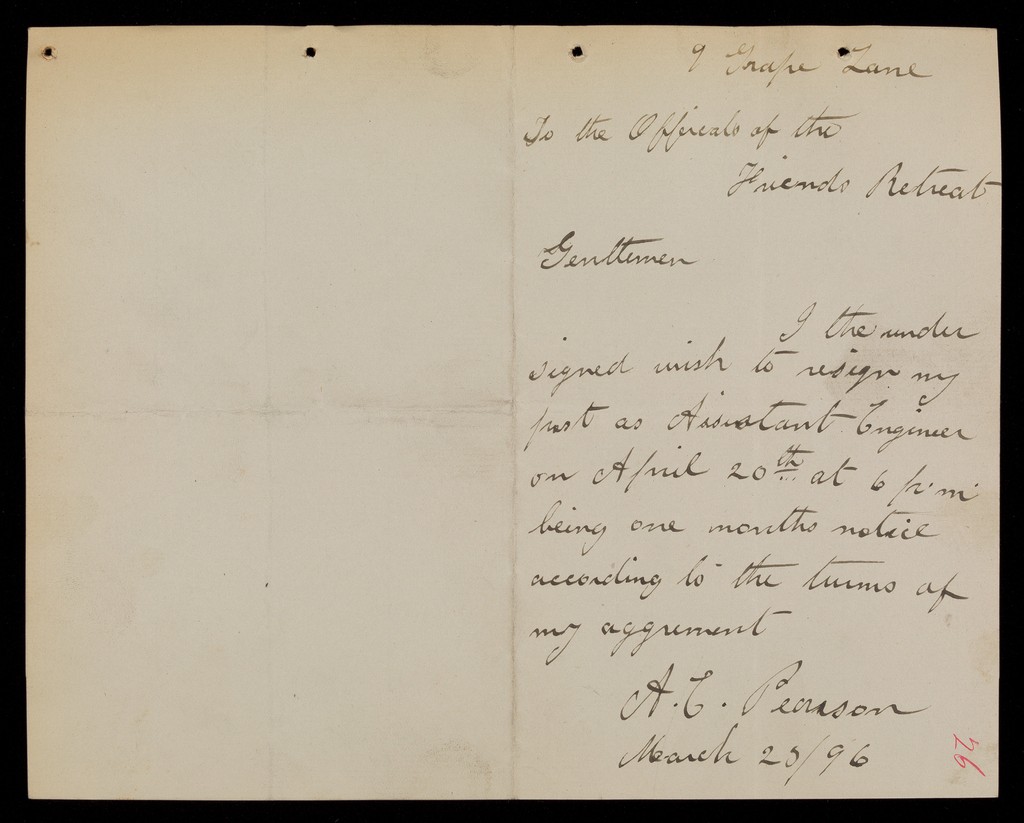 9 Grape Lane
To the Officeals of the
Friends Retreat
Genltemen
I the under
signed wish to resign my
post as Assistant Engineer
on April 20th at 6 p.m.
being one months notice
according to the turms of
my aggrement
A. E. Pearson
March 20/96
26